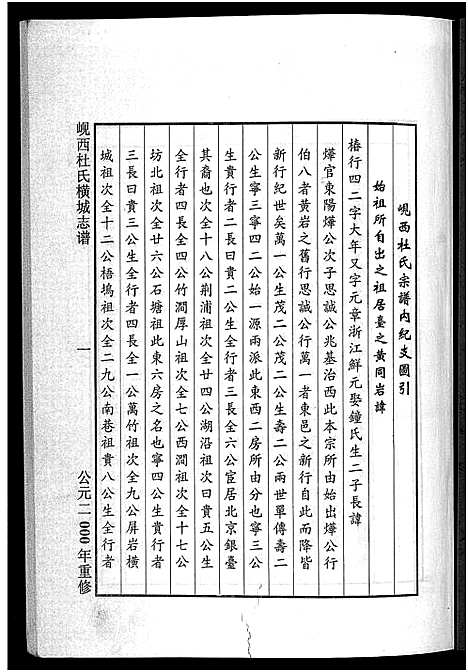 峴西杜氏宗譜內紀支圖引
始祖所自出之祖居臺之黃同岩諱
椿行四二字大年又字元章浙江鮮元娶鐘氏生二子長諱
燁官東陽燁公次子思誠公兆基治西此本宗所由始出燁公行
伯八者黃岩之舊行思誠公行萬一者東邑之新行自此而降皆
新行紀世矣萬一公生茂二公茂二公生壽二公兩世單傳壽二
公生寧三寧四二公始一源兩派此東西二房所由分也寧三公
生貴行者二長曰貴二公生全行者三長全六公宦居北京銀臺
其裔也次全十八公荆浦祖次全廿四公湖沿祖次曰貴五公生
全行者四長全四公竹澗厚山祖次全七公西澗祖次全十七公
坊北祖次全廿六公石塘祖此東六房之名也寧四公生貴行者
三長曰貴三公生全行者四長全一公萬竹祖次全九公屏岩橫
城祖次全十二公梧塢祖次全二九公南巷祖貴八公生全行者
峴西杜氏橫城志谱
一
公元二000年重修